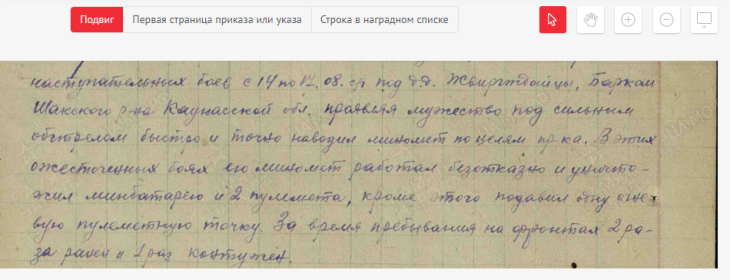 Подвиг Первая страница приказа или указа Строка в наградном списке
наступательных боев с 14 по 17.08. с/г под д.д. Жвиргждайцы, Баркай
Шакского р-на Каунасской обл. проявляя мужество под сильным
обстрелом быстро и точно наводил миномет по целям пр-ка. В этих
ожесточенных боях его миномет работал безотказно и уничто-
жил минбатарею и 2 пулемета, кроме этого подавил одну огне-
вую пулеметную точку. За время пребывания на фронтах 2 ра-
за ранен и 1 раз контужен.